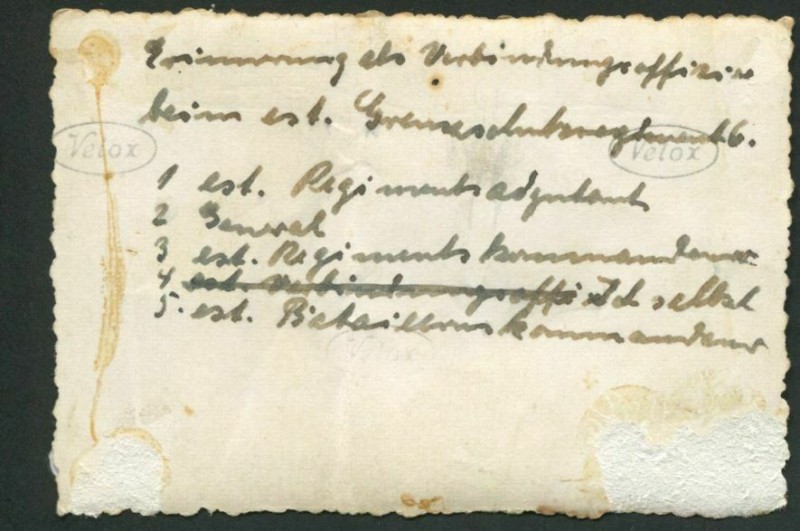 Erinnerung als Verbindungsoffizier
beim est. Grenzschutzregiment 6.
Velox
Velox
1 est. Regimentsadjutant
2 General
3 est. Regimentskommandeur
4 est. Verbindungsoffi Ich selbst
5. est. Bataillonskommandeur
Velox